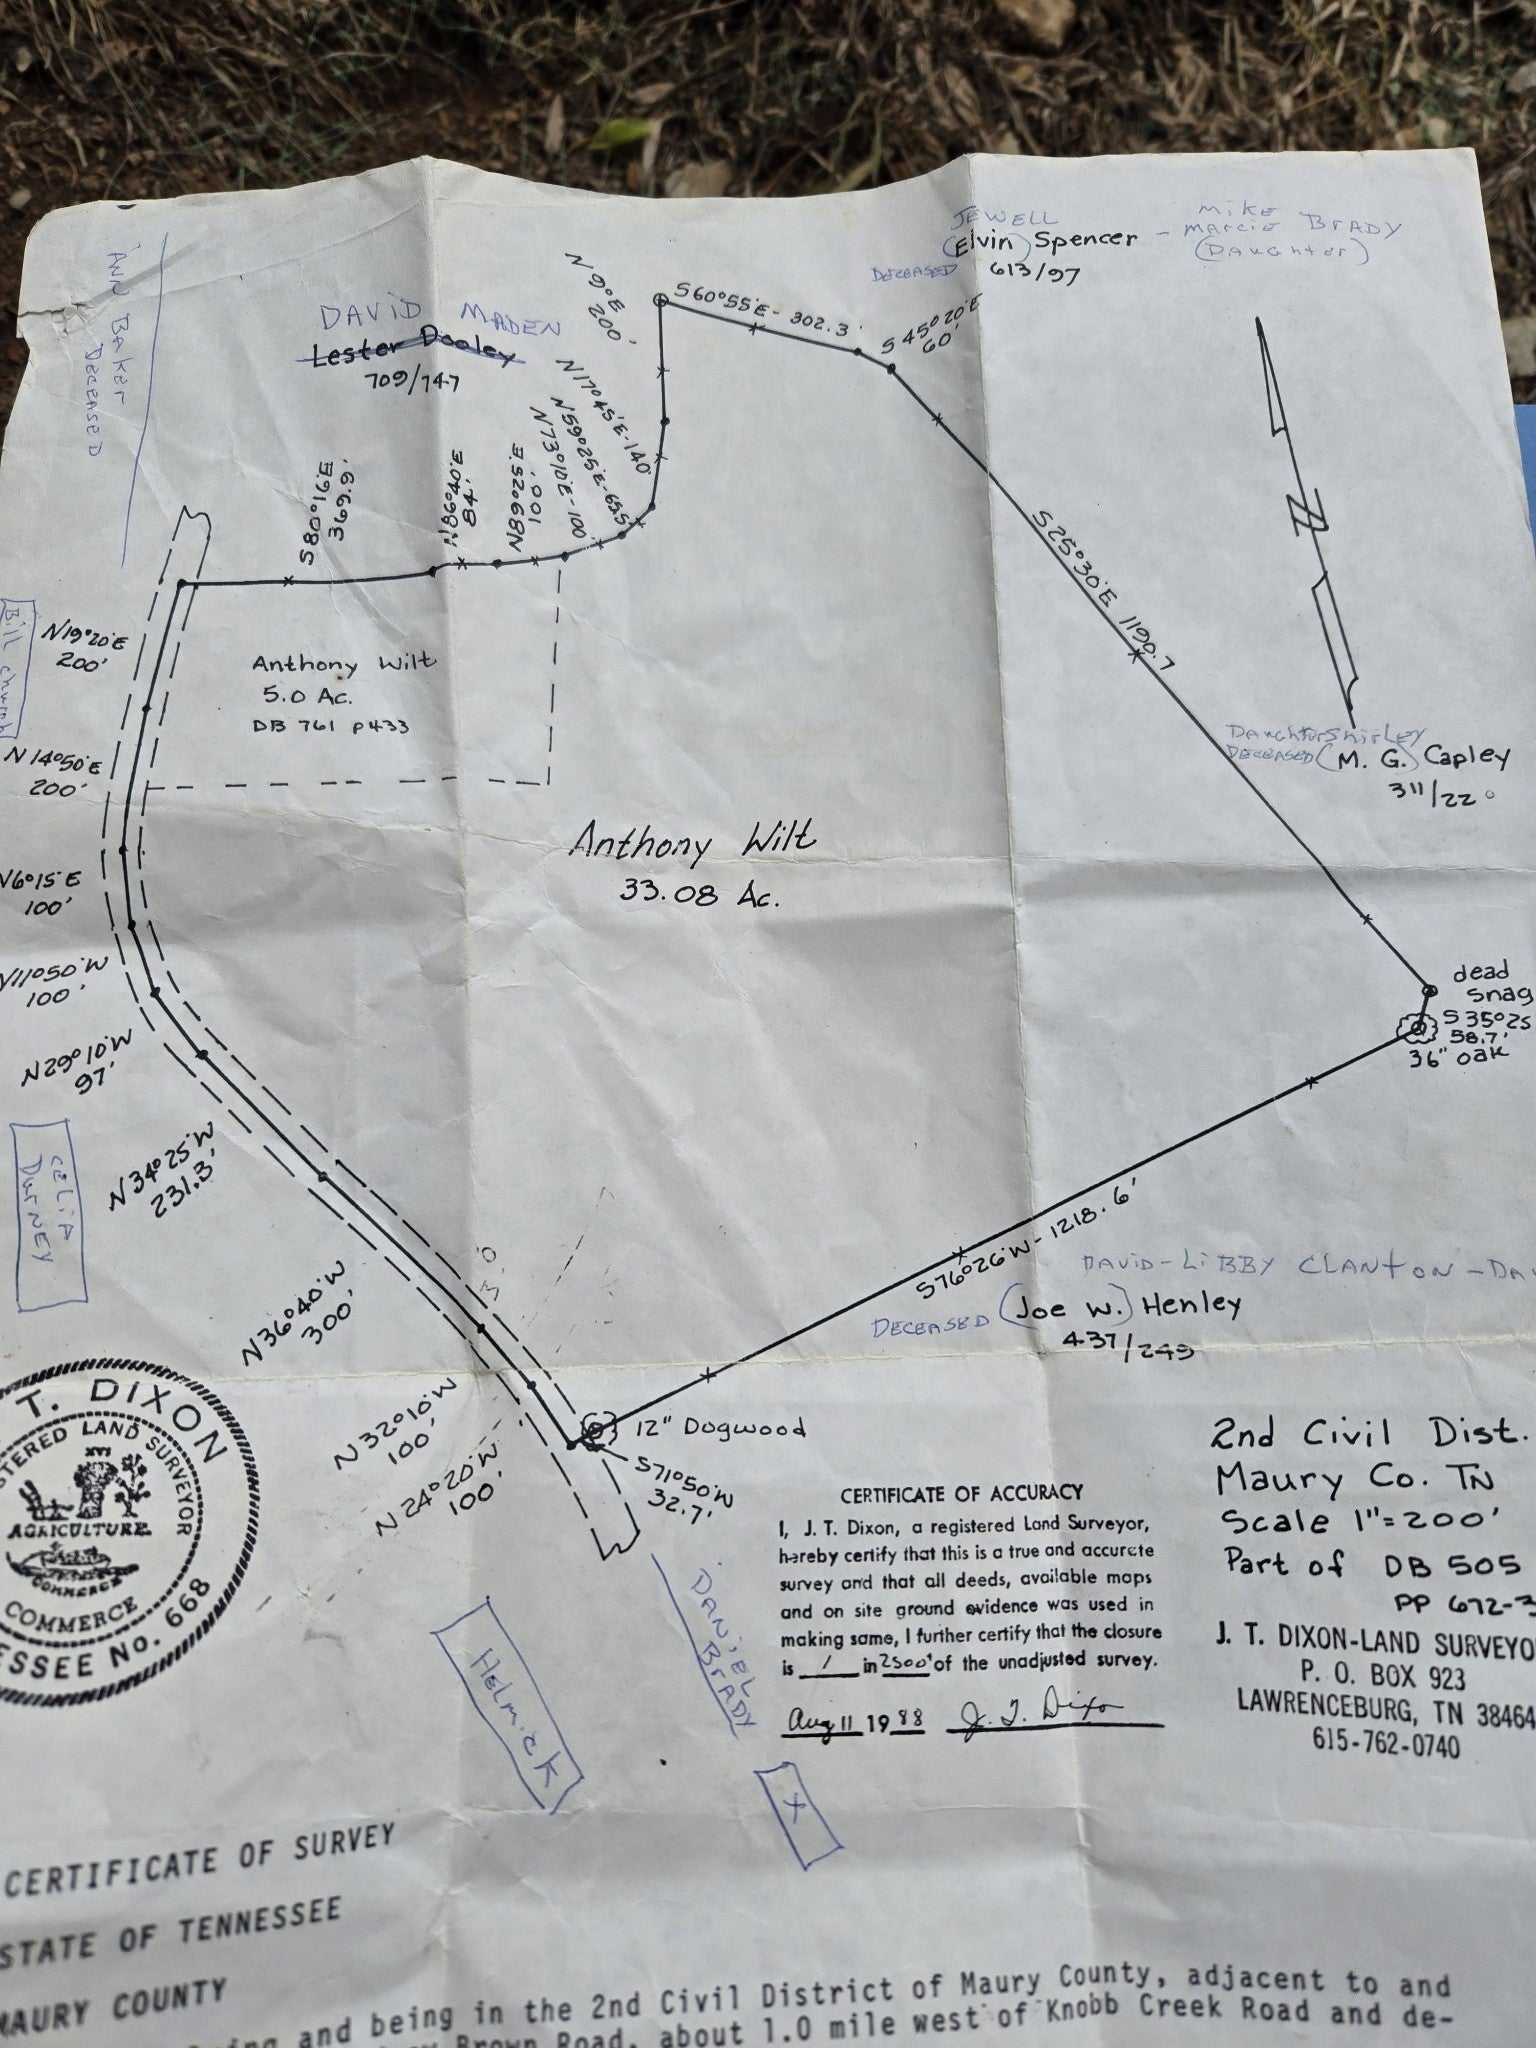 JEWELL
(Elvin) Spencer -
DECEASED 613/97
MIKE
MARCIE BRADY
(DAUGHTER)
ANN BAKER
DECEASED
DAVID MADEN
Lester Dooley
709/747
N 9°E
200'
S60°55'E - 302.3'
S 45°20'E
60'
N17°45'E-140'
N59°25'E-65.5'
N73°10'E-100'
N89°25'E
100'
N86°40'E
84'
S80°16'E
369.9'
S25°30'E 1190.7
N19°20'E
200'
Bill Church
Anthony Wilt
5.0 Ac.
DB 761 P433
N14°50'E
200'
DAUGHTER SHIRLEY
DECEASED (M. G.) Capley
311/22
Anthony Wilt
33.08 Ac.
N6°15'E
100'
N11°50'W
100'
dead
snag
S 35°25
58.7'
36" oak
N29°10'W
97'
CELIA
DURNEY
N34°25'W
231.3'
N36°40'W
300'
S76°26'W - 1218.6'
DAVID-LIBBY CLANTON - DA
DECEASED (Joe W.) Henley
437/249
N 32°10'W
100'
N 24°20'W
100'
12" Dogwood
S71°50'W
32.7'
T. DIXON
STERED LAND SURVEYOR
XVI
AGRICULTURE
COMMERCE
COMMERCE
ESSEE No. 668
HELMICK
DANIEL
BRADY
X
CERTIFICATE OF ACCURACY
I, J. T. Dixon, a registered Land Surveyor,
hereby certify that this is a true and accurate
survey and that all deeds, available maps
and on site ground evidence was used in
making same, I further certify that the closure
is 1 in 2500' of the unadjusted survey.
Aug 11 1988 J. T. Dixon
2nd Civil Dist.
Maury Co. TN
Scale 1"=200'
Part of DB 505
PP 672-3
J. T. DIXON-LAND SURVEYO
P. O. BOX 923
LAWRENCEBURG, TN 38464
615-762-0740
CERTIFICATE OF SURVEY
STATE OF TENNESSEE
MAURY COUNTY
and being in the 2nd Civil District of Maury County, adjacent to and
Brown Road, about 1.0 mile west of Knobb Creek Road and de-